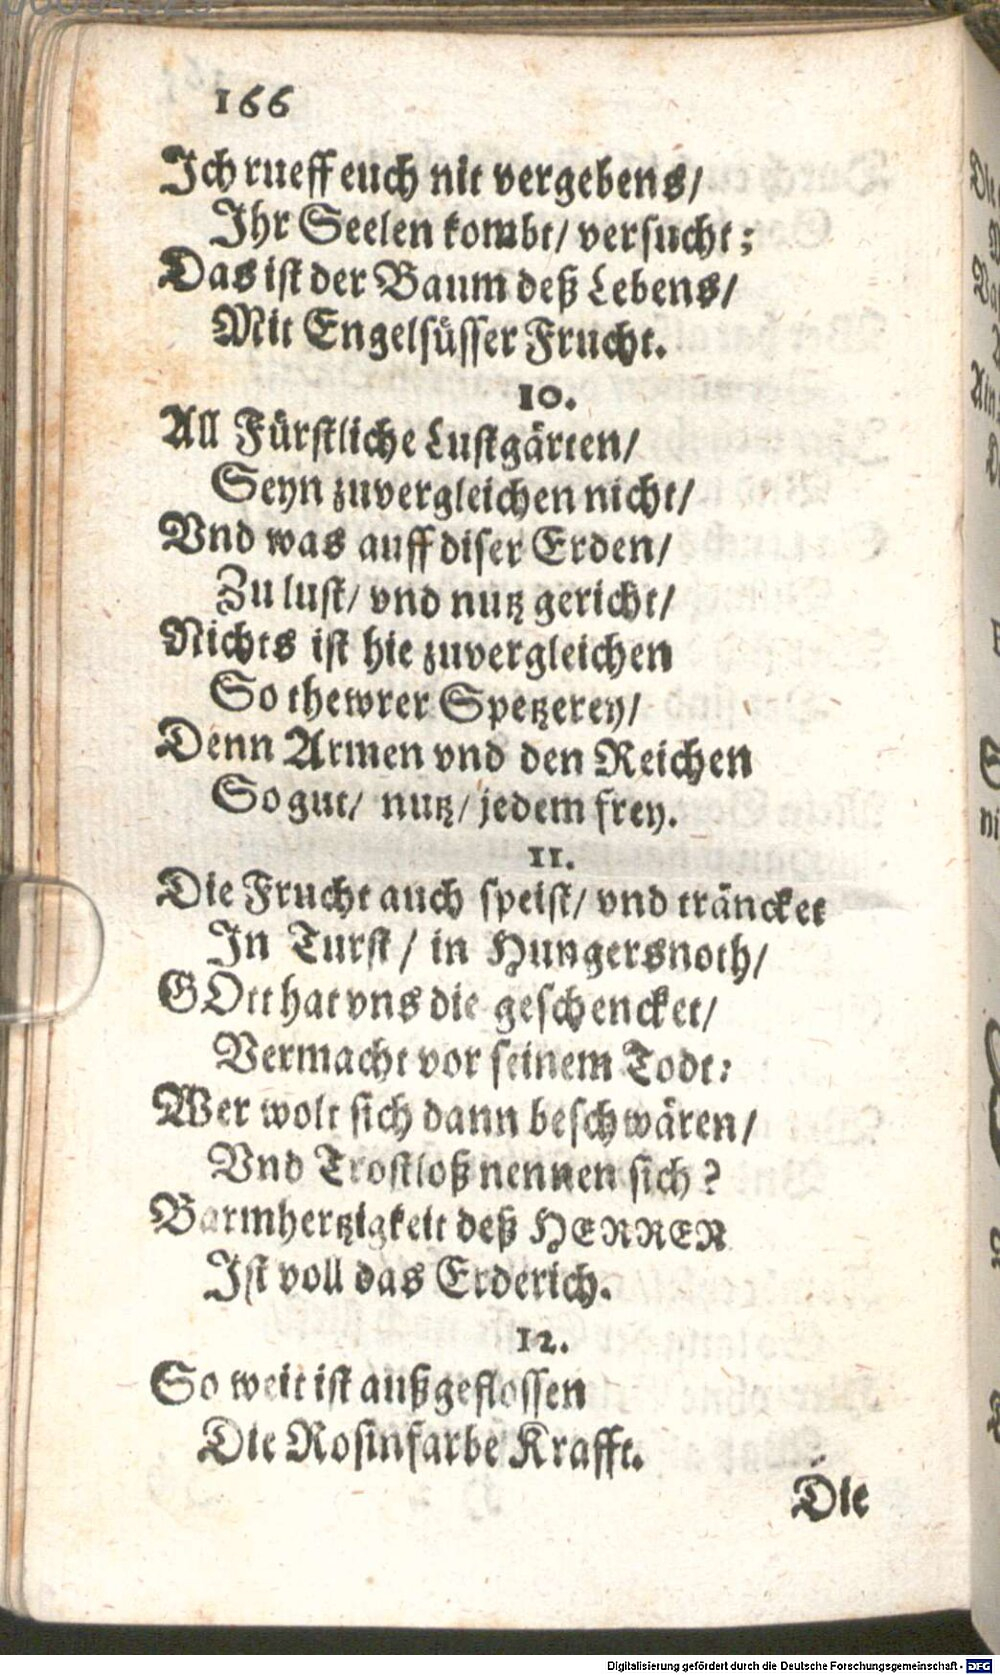 166
Ich rueff euch nit vergebens/
Ihr Seelen kombt/ versucht:
Das ist der Baum deß Lebens/
Mit Engelsüsser Frucht.
10.
All Fürstliche Lustgärten/
Seyn zuvergleichen nicht/
Vnd was auff diser Erden/
Zu lust/ vnd nutz gericht/
Nichts ist hie zuvergleichen
So thewrer Spetzerey/
Denn Armen vnd den Reichen
So gut/ nutz/ jedem frey.
11.
Die Frucht auch speist/ vnd träncket
In Turst/ in Hungersnoth/
GOtt hat vns die geschencket/
Vermacht vor seinem Todt:
Wer wolt sich dann beschwären/
Vnd Trostloß nennen sich?
Barmhertzigkeit deß HERREN
Ist voll das Erderich.
12.
So weit ist außgeflossen
Die Rosinfarbe Krafft.
Die
Digitalisierung gefördert durch die Deutsche Forschungsgemeinschaft - DFG